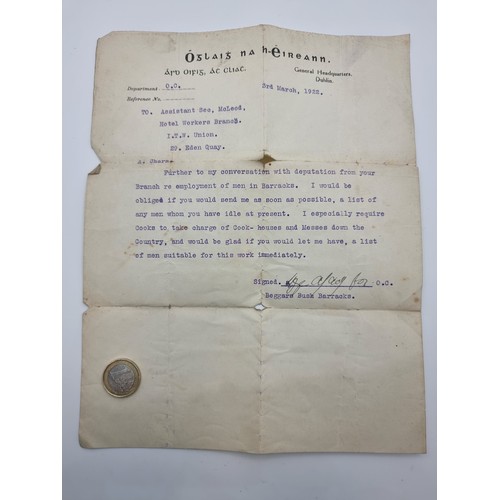 Óglaiġ na h-Éireann.
General Headquarters,
Dublin.
Department O.C.
Reference No.
2rd March, 1922.
TO. Assistant Sec, McLeod.
Hotel Workers Branch.
I.T.W. Union.
29. Eden Quay.
A. Chara.
Further to my conversation with deputation from your
Branch re employment of men in Barracks. I would be
obliged if you would send me as soon as possible, a list of
any men whom you have idle at present. I especially require
Cooks to take charge of Cook-houses and Messes down the
Country, and would be glad if you would let me have, a list
of men suitable for this work immediately.
Signed. O.C.
Beggars Bush Barracks.